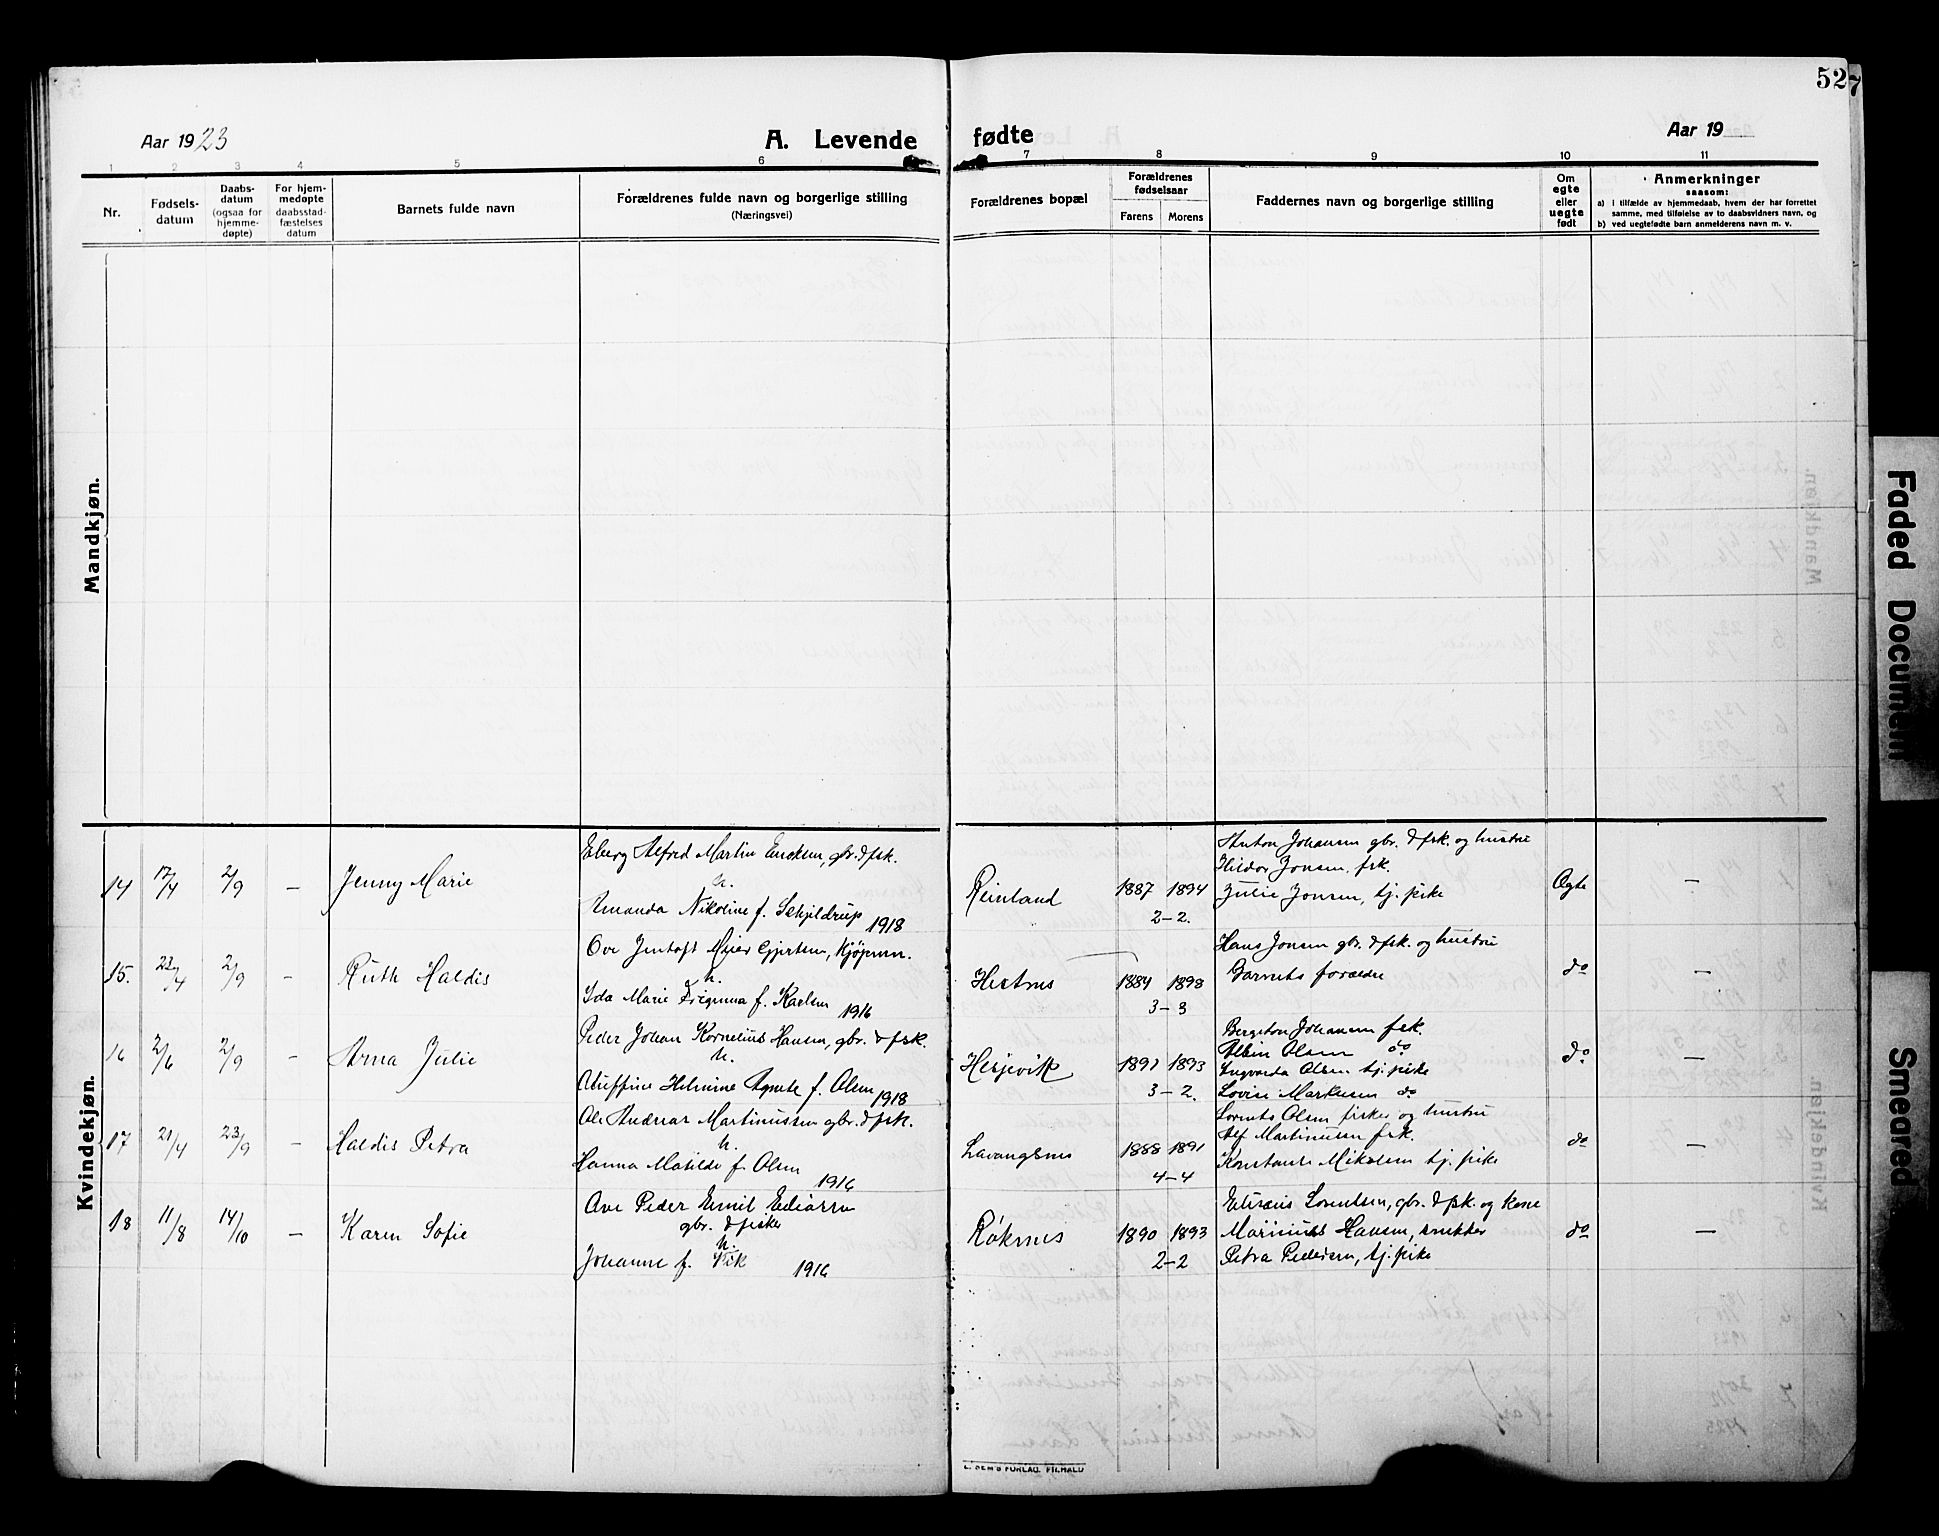 52
7
Aar 1923
A. Levende
fødte
Aar 19
1 2 3 4 5 6
7 8 9 10 11
Nr.
Fødsels-
datum
Daabs-
datum
(ogsaa for
hjemme-
døpte)
For hjem-
medøpte
daabsstad-
fæstelses
datum
Barnets fulde navn
Forældrenes fulde navn og borgerlige stilling
(Næringsvei)
Forældrenes bopæl
Forældrenes
fødselsaar
Farens Morens
Faddernes navn og borgerlige stilling
Om
egte
eller
uegte
født
Anmerkninger
saasom:
a) i tilfælde av hjemmedaab, hvem der har forrettet
samme, med tilføielse av to daabsvidners navn, og
b) ved uegtefødte barn anmelderens navn m. v.
Mandkjøn.
Kvindekjøn.
14 17/4 2/9 — Jenny Marie
Alfred Martin gbr. & fsk.
h.
Amanda Nikoline f. Schjeldrup 1918
Reinland 1887 1894
2-2.
Anton Johansen gbr. & fsk. og hustru
Hildor Jonsen, fsk.
Julie Jonsen, tj. pike
Ægte —
15. 23/4 2/9 — Ruth Haldis
Ove Jentoft Meier Gjertsen, Kjøpmn.
h.
Ida Marie f. Karlsen 1916
Hestnes 1884 1898
3-3
Hans Jonsen gbr. & fsk. og hustru
Barnets forældre
do —
16 2/6 2/9 — Arna Julie
Peder Johan Kornelius Hansen, gbr. & fsk.
h.
f. Olsen 1918
Hesjevik 1891 1893
3-2.
Bergeton Johansen fsk.
Albin Olsen do
Ingvarda Olsen tj. pike
Lovise Markusen do
do —
17 21/4 23/9 — Haldis Petra
Ole Andreas Martinussen gbr. & fsk.
h.
Hanna Matilde f. Olsen 1916
Lavangsnes 1888 1891
4-4
Lorents Olsen fisker og hustru
Alf Martinusen fsk.
Konstanse Mikalsen tj. pike
do —
18 11/8 14/10 — Karen Sofie
Peder Emil
gbr. & fisker
h.
Johanne f. Vik 1916
Røknes 1890 1893
2-2
Lorentsen, gbr. & fsk. og kone
Marinius Hansen, snekker
Petra Pedersen, tj. pike
do —
FORLAG.
Faded Document
Smeared